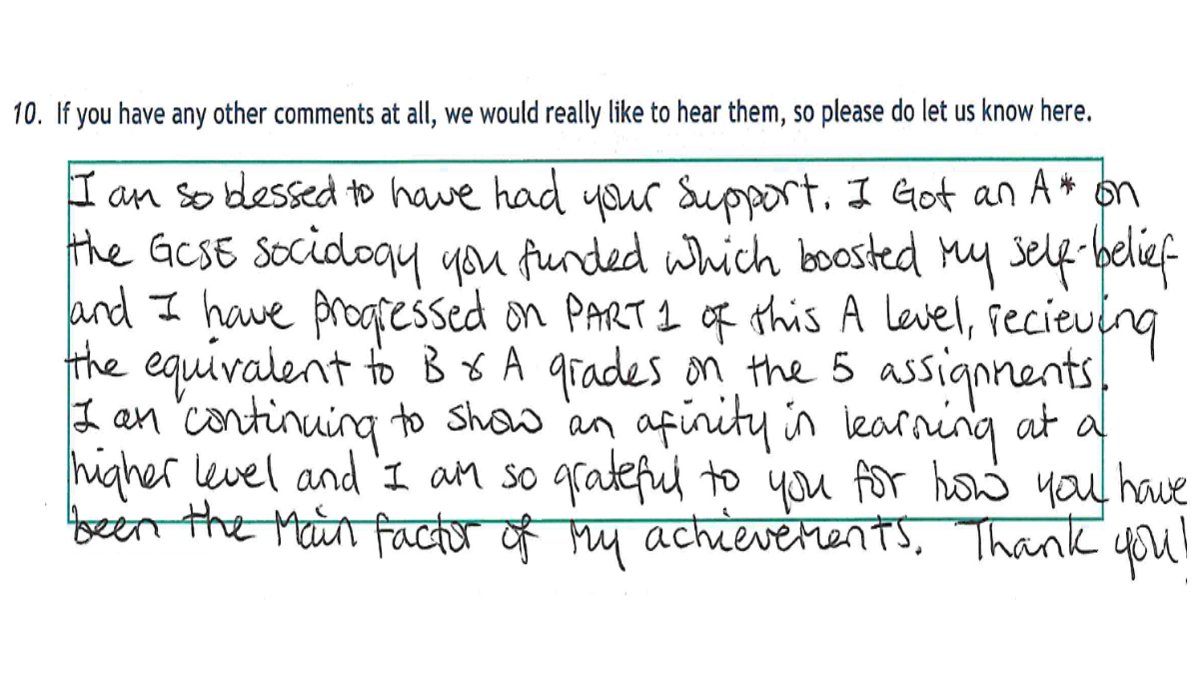 10. If you have any other comments at all, we would really like to hear them, so please do let us know here.
I am so blessed to have had your support. I Got an A* on
the GCSE Sociology you funded which boosted my self-belief
and I have progressed on PART 1 of this A Level, recieving
the equivalent to B & A grades on the 5 assignments.
I am continuing to show an afinity in learning at a
higher level and I am so grateful to you for how you have
been the Main factor of my achievements. Thank you!